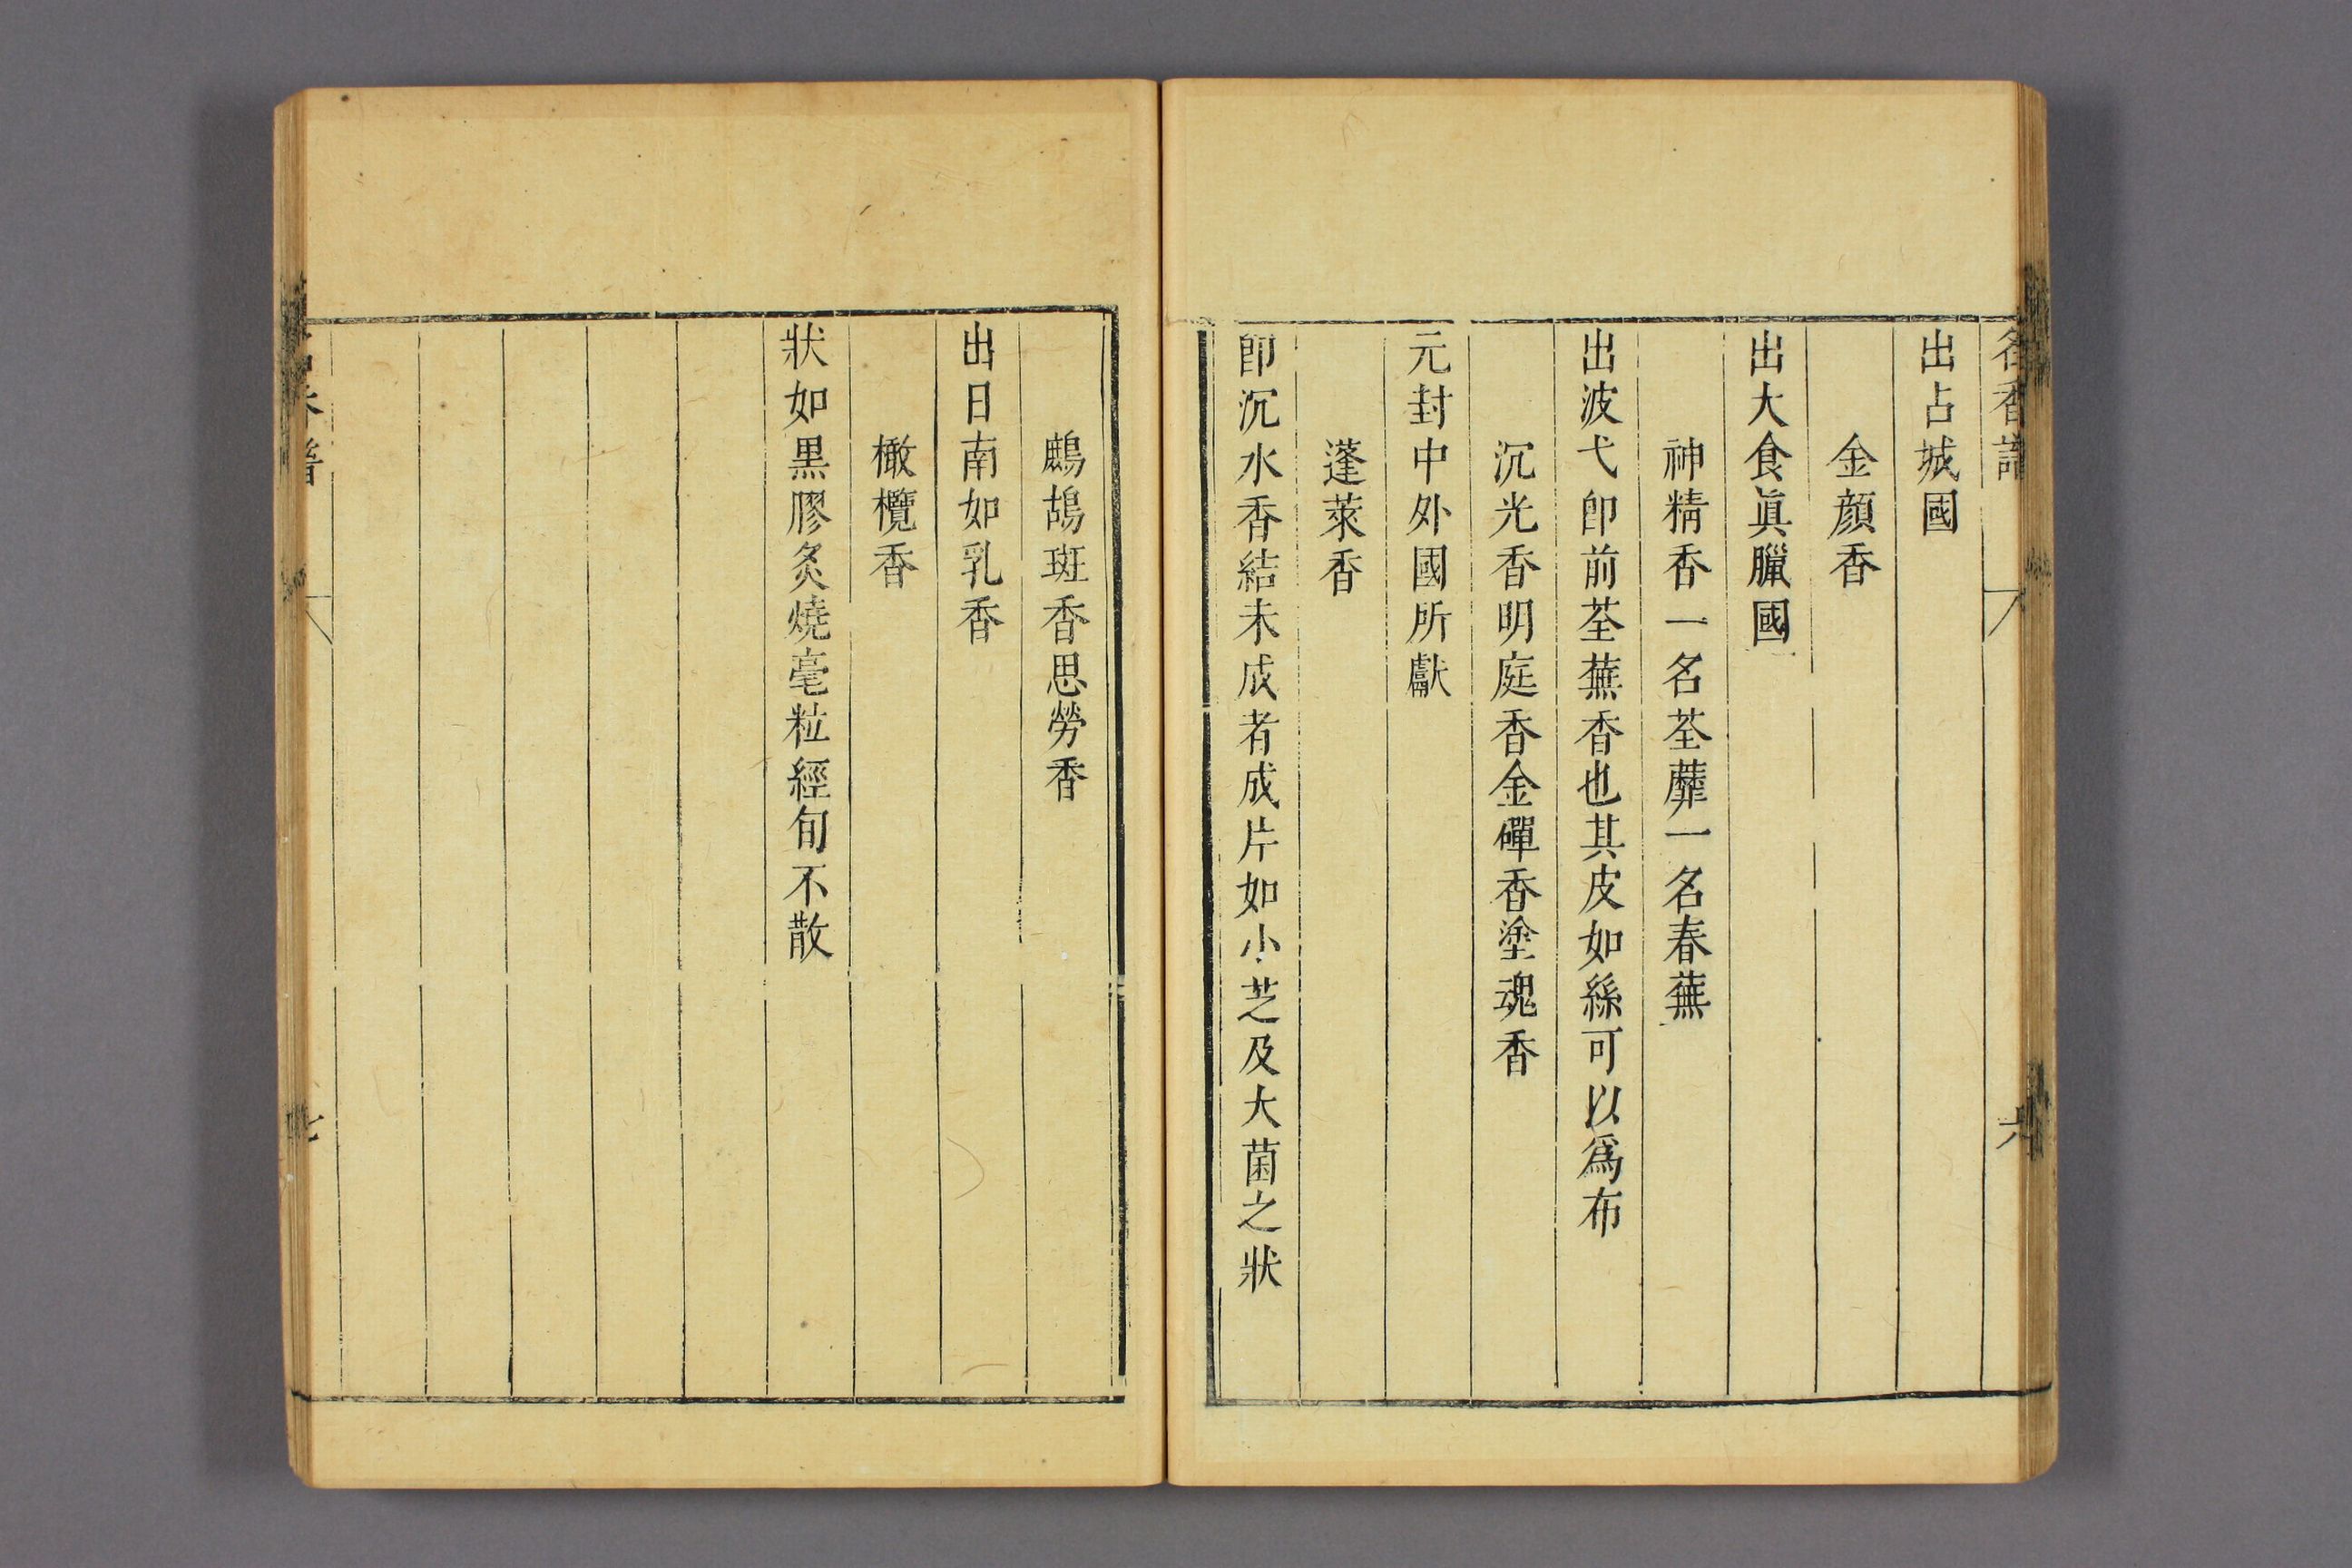 名香譜
六
出占城國
金顔香
出大食眞臘國
神精香一名荃蘼一名春蕪
出波弋卽前荃蕪香也其皮如絲可以爲布
沉光香明庭香金磾香塗魂香
元封中外國所獻
蓬萊香
卽沉水香結未成者成片如小芝及大菌之狀
鷓鴣斑香思勞香
出日南如乳香
橄欖香
狀如黒膠炙燒毫粒經旬不散
七